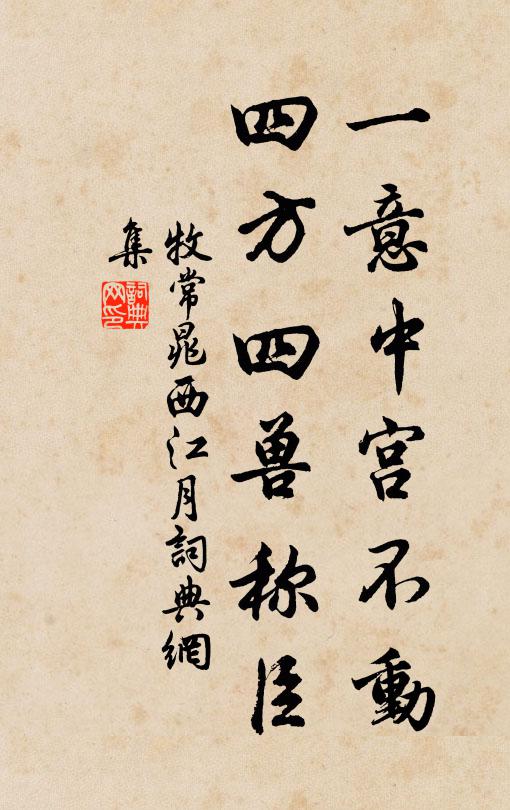 一意中宫不動
四方四兽称臣
牧常晁西江月詞典網
集
詞典
网印